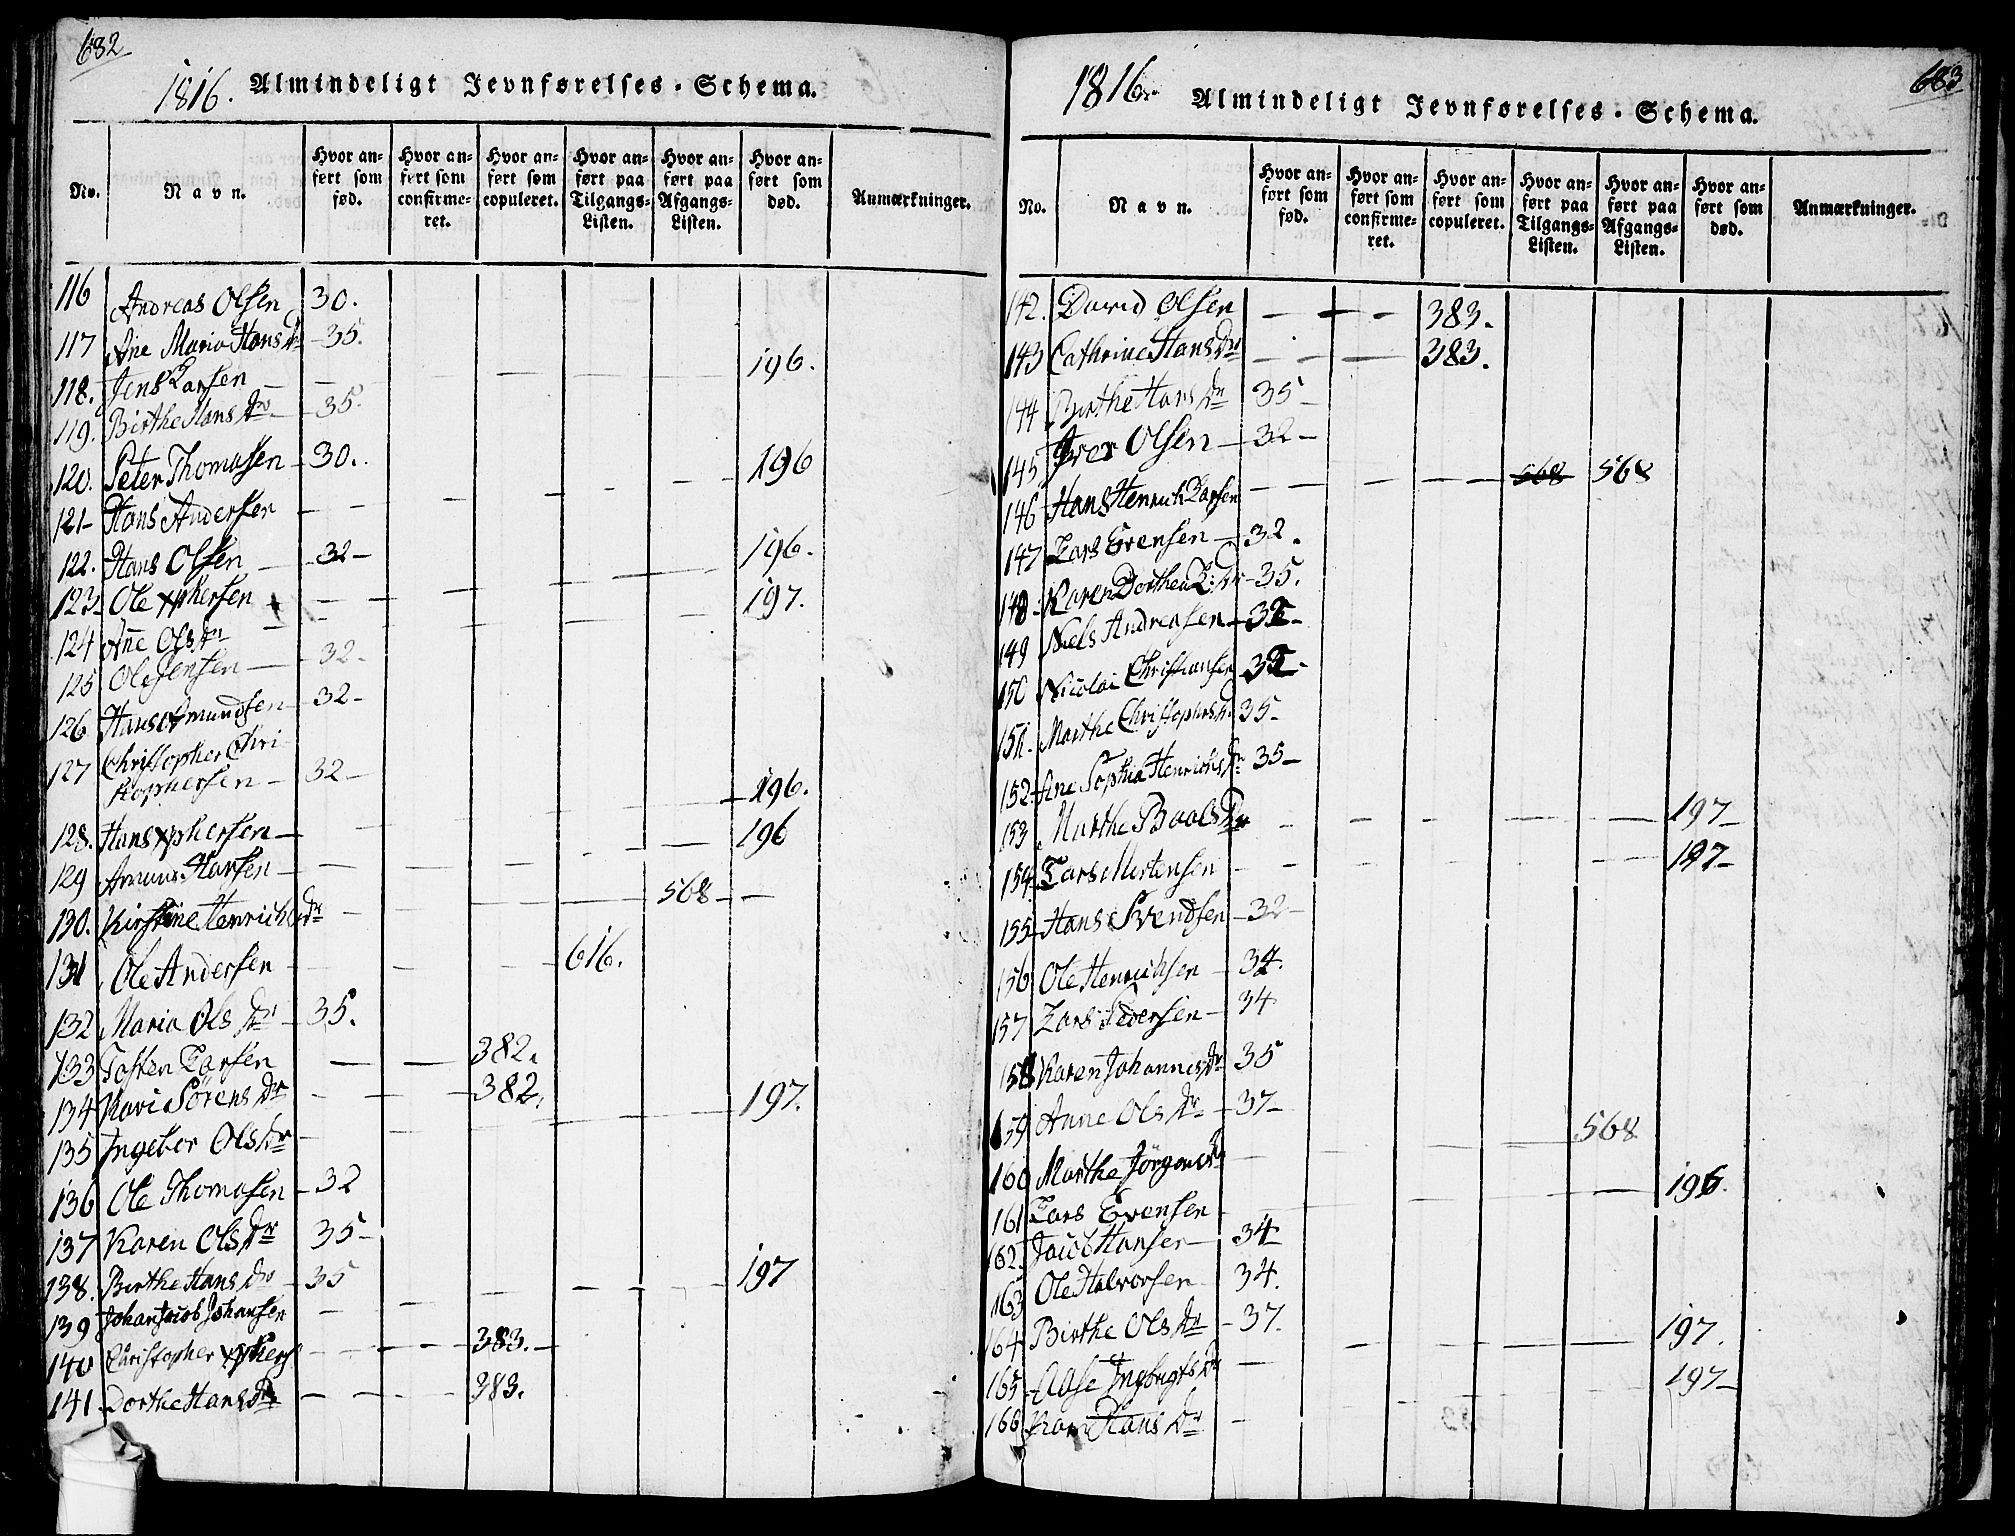 682
1816. Almindeligt Jevnførelses-Schema.
No. Navn. Hvor anført som fød. Hvor anført som confirmeret. Hvor anført som copuleret. Hvor anført paa Tilgangs-Listen. Hvor anført paa Afgangs-Listen. Hvor anført som død. Anmærkninger.
116 Andreas Olsen 30.
117 Ane Maria Hans Dr 35.
118. Jens Larsen 196.
119. Birthe Hans Dr 35.
120. Peter Thomasen 30.
121 Hans Andersen 196
122. Hans Olsen 32
123 Ole Xphersen 196.
124 Ane Ols Dr 197.
125 Ole Jensen 32
126 Hans Amundsen 32
127 Christopher Chri-
stophersen 32
128. Hans Xphersen 196.
129 Hansen 196
130. Kirstine Henrichs Dr 568
131 Ole Andersen 616.
132 Maria Ols Dr 35.
133 Tosten Larsen 382.
134 Kari Sörens Dr 382.
135 Ingebor Ols Dr 197.
136 Ole Thomasen 32
137 Karen Ols Dr 35
138. Birthe Hans Dr 35
139 Johan Jacob Johansen 197
140 Christopher Xphers 383.
141 Dorthe Hans Dr 383.
683
1816. Almindeligt Jevnførelses-Schema.
No. Navn. Hvor anført som fød. Hvor anført som confirmeret. Hvor anført som copuleret. Hvor anført paa Tilgangs-Listen. Hvor anført paa Afgangs-Listen. Hvor anført som død. Anmærkninger.
142. David Olsen 383.
143 Cathrine Hans Dr 383.
144 Birthe Hans Dr 35
145 Iver Olsen 32
146 Hans Henrich Larsen 568 568
147 Lars Evensen 32.
148 Karen Dorthea L: Dr 35.
149 Niels Andreasen 32
150 Nicolai Christiansen 32
151. Marthe Christophers Dr 35
152. Ane Sophia Henrichs Dr 35
153 Marthe Dr 197
154. Lars Mortensen 197
155 Hans Svendsen 32
156 Ole Henrichsen 34.
157 Lars Pedersen 34
158 Karen Johannes Dr 35
159 Anne Ols Dr 37
160 Marthe Jörgens Dr 568
161 Lars Evensen 196.
162. Jacob Hansen 34
163 Ole Halvorsen 34.
164 Birthe Ols Dr 37.
165 Aase Dr 197.
166 Hans Dr 197